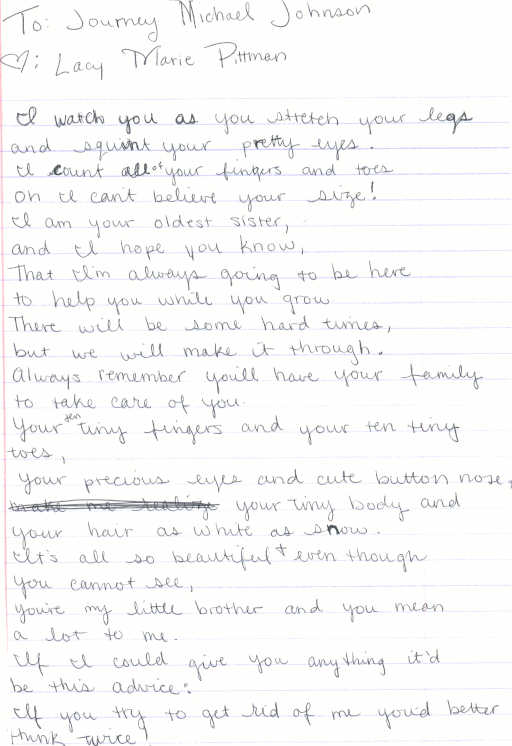 To: Journey Michael Johnson
♡: Lacy Marie Pittman
I watch you as you stretch your legs
and squint your pretty eyes.
I count all of your fingers and toes
oh I can't believe your size!
I am your oldest sister,
and I hope you know,
That I'm always going to be here
to help you while you grow
There will be some hard times,
but we will make it through.
Always remember you'll have your family
to take care of you.
Your ten tiny fingers and your ten tiny
toes,
your precious eyes and cute button nose,
your tiny body and
your hair as white as snow.
It's all so beautiful + even though
you cannot see,
you're my little brother and you mean
a lot to me.
If I could give you anything it'd
be this advice:
If you try to get rid of me you'd better
think twice!